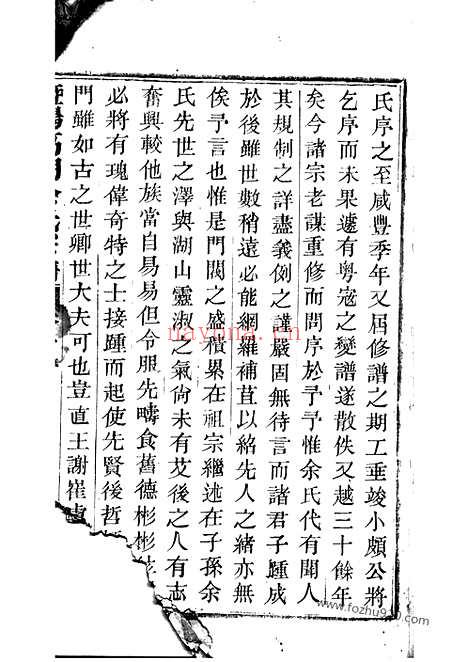 氏序之至咸豐季年又屆修譜之期工垂竣小頗公將
乞序而未果遽有粵寇之變譜遂散佚又越三十餘年
矣今諸宗老謀重修而問序於予予惟余氏代有聞人
其規制之詳盡義例之謹嚴固無待言而諸君子踵成
於後雖世數稍遠必能網羅補苴以紹先人之緒亦無
俟予言也惟是門閥之盛積累在祖宗繼述在子孫余
氏先世之澤與湖山靈淑之氣尚未有艾後之人有志
奮興較他族當自易易但令服先疇食舊德彬彬
必將有瑰偉奇特之士接踵而起使先賢後哲
門雖如古之世卿世大夫可也豈直王謝崔
暨陽高湖余氏宗譜
nayona.cn
www.fozhu920.com